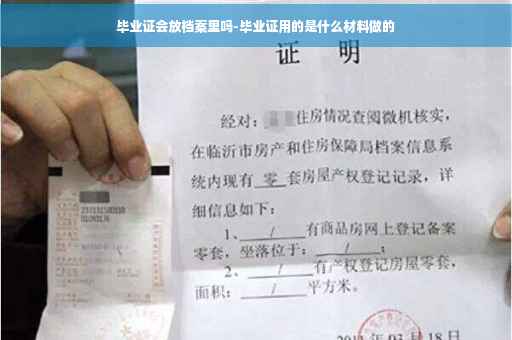 毕业证会放档案里吗-毕业证用的是什么材料做的
证 明
经对：住房情况查阅微机核实，
在临沂市房产和住房保障局档案信息系
统内现有 零 套房屋产权登记记录，详
细信息如下：
1、 / 有商品房网上登记备案
零套，坐落位于： / ；
2、 / 有产权登记房屋零套，
面积： / 平方米。
月18日